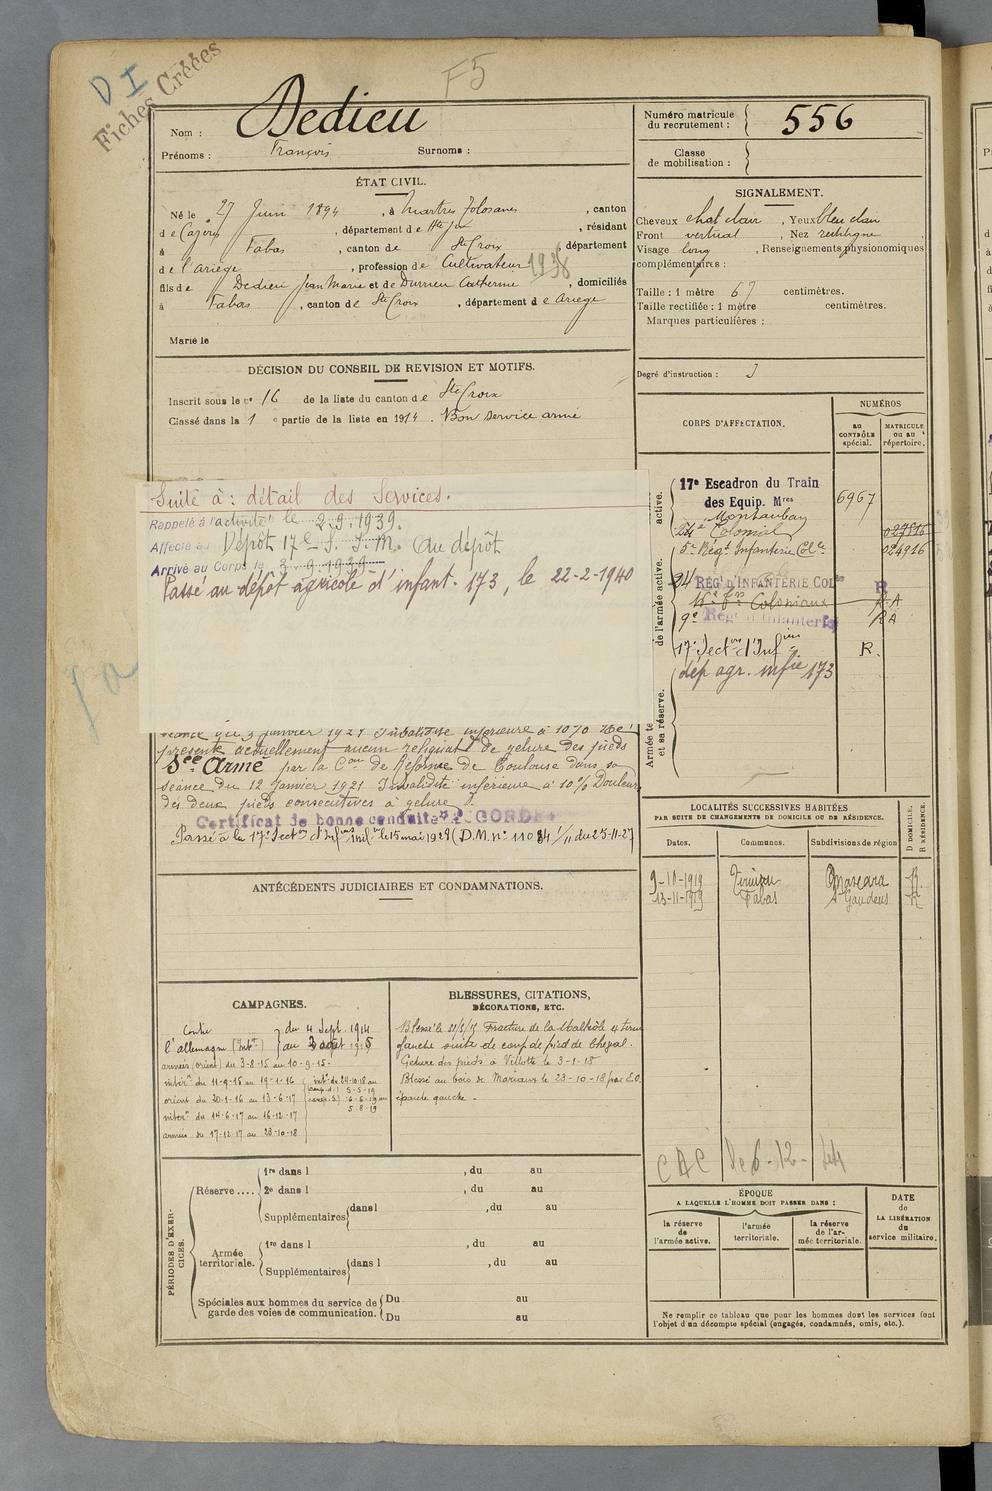 D I
Fiches Créées
F5
Nom : Dedieu
Prénoms : François Surnoms :
Numéro matricule du recrutement : 556
Classe de mobilisation :
ÉTAT CIVIL.
Né le 27 Juin 1894, à Martres Tolosanes, canton
de Cazères, département de Hte Gne, résidant
à Fabas, canton de Ste Croix, département
de l'Ariège, profession de Cultivateur 1938
fils de Dedieu Jean Marie et de Durrieu Catherine, domiciliés
à Fabas, canton de Ste Croix, département de Ariège
Marié le
SIGNALEMENT.
Cheveux chat clair, Yeux bleu clair
Front vertical, Nez rectiligne
Visage long, Renseignements physionomiques
complémentaires :
Taille : 1 mètre 67 centimètres.
Taille rectifiée : 1 mètre centimètres.
Marques particulières :
Degré d'instruction : 3
DÉCISION DU CONSEIL DE REVISION ET MOTIFS.
Inscrit sous le no 16 de la liste du canton de Ste Croix
Classé dans la 1 e partie de la liste en 1914. Bon service armé
CORPS D'AFFECTATION.
NUMÉROS
au CONTRÔLE spécial.
MATRICULE ou au répertoire.
Suite à : détail des Services.
Rappelé à l'activité le 2.9.1939.
Affecté au Dépôt 17e S. I. M. Au dépôt
Arrivé au Corps le 3-9-1939
Passé au dépôt agricole d'infant. 173, le 22-2-1940
active.
de l'armée active.
Armée te et sa réserve.
17e Escadron du Train
des Equip. Mres 6967
Montauban
24e Colonial
5e Régt Infanterie Colle 024916
24 RÉGt D'INFANTERIE COLle R
Coloniaux R A
9e Régt d'Infanterie R A
17e Secton d'Infiers R.
dép agr. infie 173
séance du 3 Janvier 1921 Invalidité inférieure à 10%
présente actuellement aucun reliquat de gelure des pieds
Sce Armé par la Con de Réforme de Toulouse dans sa
séance du 12 Janvier 1921 Invalidité inférieure à 10% Douleurs
des deux pieds consécutives à gelure
Certificat de bonne conduite ACCORDÉ
Passé à la 17e Secton d'Infiers Milres le 15 mai 1928 (D.M. no 11084 1/11 du 25-11-27)
LOCALITÉS SUCCESSIVES HABITÉES
PAR SUITE DE CHANGEMENTS DE DOMICILE OU DE RÉSIDENCE.
Dates. Communes. Subdivisions de région D DOMICILE. R RÉSIDENCE.
9-10-1919 Mascara R
13-11-1919 Fabas St Gaudens R
ANTÉCÉDENTS JUDICIAIRES ET CONDAMNATIONS.
CAMPAGNES.
Contre l'allemagne (intr) du 4 Sept. 1914
au 2 août 1915
armées (orient) du 3-8-15 au 10-9-15.
intérr du 11-9-15 au 19-1-16
orient du 20-1-16 au 13-6-17
intérr du 14-6-17 au 16-12-17
armées du 17-12-17 au 23-10-18
intr du 24-10-18 au
5-5-19
6-5-19 au
5-8-19
BLESSURES, CITATIONS,
DÉCORATIONS, ETC.
Fracture de la Malléole
gauche suite de coup de pied de Cheval.
Gelure des pieds à Villotte le 3-1-18
Blessé au bois de le 23-10-18 par E.O.
épaule gauche.
CAC De 6-12-44
PÉRIODES D'EXERCICES.
Réserve.... 1re dans l , du au
2e dans l , du au
Supplémentaires dans l , du au
Armée territoriale. 1re dans l , du au
Supplémentaires dans l , du au
Spéciales aux hommes du service de garde des voies de communication. Du au
Du au
ÉPOQUE
A LAQUELLE L'HOMME DOIT PASSER DANS :
la réserve de l'armée active. l'armée territoriale. la réserve de l'armée territoriale.
DATE de LA LIBÉRATION du service militaire.
Ne remplir ce tableau que pour les hommes dont les services font
l'objet d'un décompte spécial (engagés, condamnés, omis, etc.).